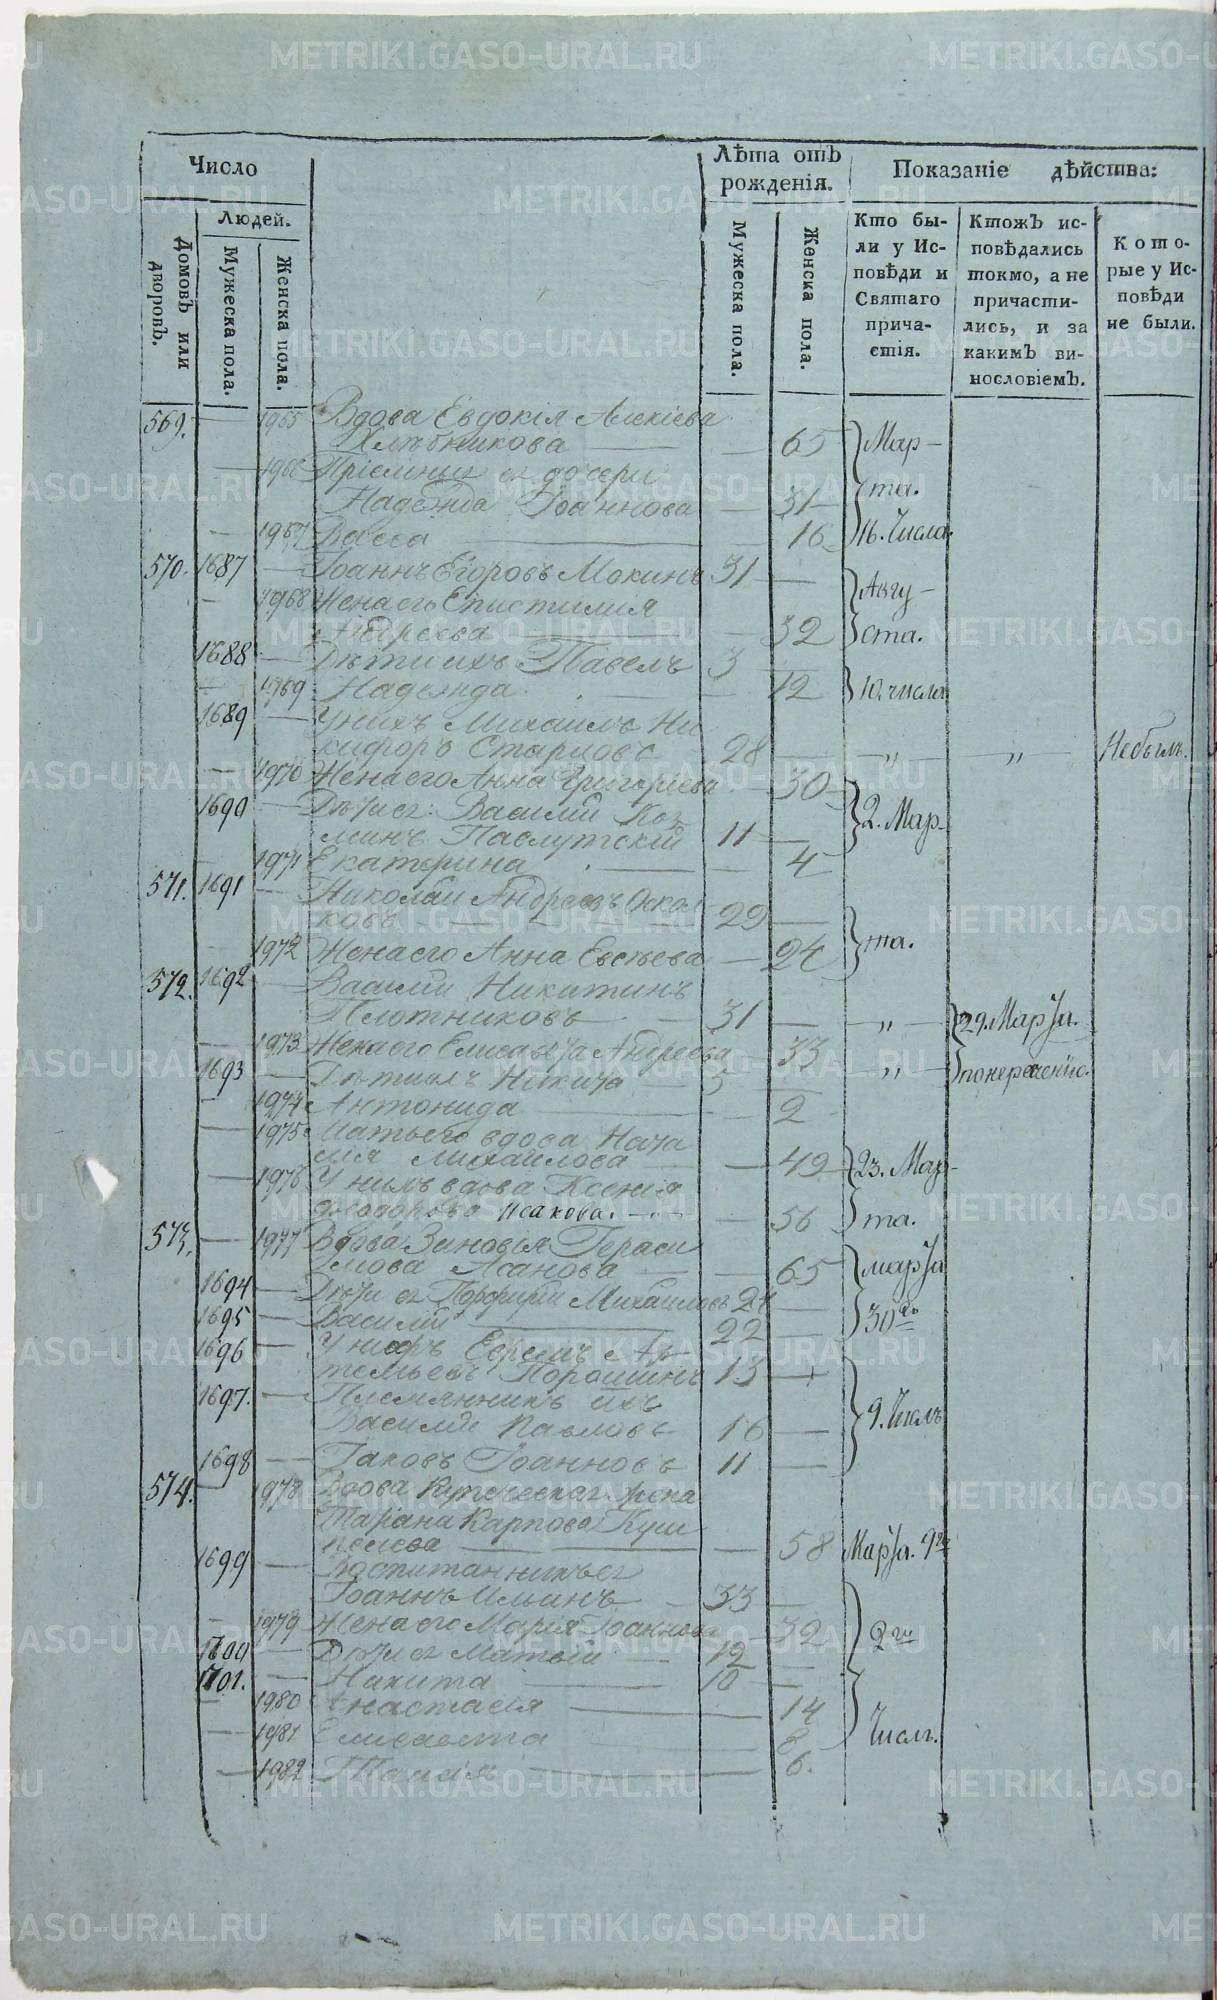 Число
Лѣта отъ рожденія.
Показаніе дѣйства:
Людей.
Домовъ или дворовъ.
Мужеска пола.
Женска пола.
Мужеска пола.
Женска пола.
Кто бы-
ли у Ис-
повѣди и
Святаго
прича-
стія.
Ктожъ ис-
повѣдались
токмо, а не
причасти-
лись, и за
какимъ ви-
нословіемъ.
Кото-
рые у Ис-
повѣди
не были.
569. — 1965 Вдова Евдокія Алекіева
Хлѣбникова — — 65 Мар-
— 1966 Пріемниг ея дочери
Надежда Іоаннова — 31 та.
— 1967 Васса — — 16 16. Числа.
570. 1687 — Іоаннъ Егоровъ Мокинъ 31 — Авгу-
— 1968 Жена его Епистимія
Андреева — — 32 ста.
1688 — Дѣти ихъ Павелъ 3 —
— 1969 Надежда — — 12 10. числа
1689 — У нихъ Михаилъ Ни
кифоръ Старцовъ 28 — — „ — „ — Небылъ.
— 1970 Жена его Анна Григорьева — 30
1690 — Дѣти ея: Василій Коз
минъ Павлутскій 11 — 2. Мар-
— 1971 Екатерина — — 4
571. 1691 — Николай Андреевъ Оскол
ковъ — 29 — та.
— 1972 Жена его Анна Евсѣева — 24
572. 1692 — Василій Никитинъ
Плотниковъ — 31 — — „ — 29. Марта.
— 1973 Жена его Елисавета Андреева — 33
1693 — Дѣти ихъ Никита — 5 — — „ —
— 1974 Антонида — — 2
— 1975 Мать его вдова Ната
лія Михайлова — — 49 23. Мар-
— 1976 У нихъ вдова Ксенія
Ѳеодорова Исакова. — — 56 та.
573. — 1977 Вдова Зиновія Гераси
мова Асанова — — 65 марта
1694 — Дѣти ея Порфирій Михайловъ 24 —
1695 — Василій — 22 — 30го
1696 — У нихъ Ефремъ Ар
темьевъ Порошинъ 13 —
1697. — Племянникъ ихъ
Василій Павловъ 16 — 9. Числъ
1698 — Іаковъ Іоанновъ 11 —
574. — 1978 Вдова Купеческая жена
Карпова Куш
— — 58 Марта. 9го
1699 — Воспитанникъ ея
Іоаннъ Ильинъ — 33 —
— 1979 Жена его Марія Іоаннова — 32 2го
1700 — Дѣти ея Матвій — 12 —
1701. — Никита — 10 —
— 1980 Анастасія — 14
— 1981 Елисавета — 8 Числъ.
— 1982 Таисія — 6.
METRIKI.GASO-URAL.RU